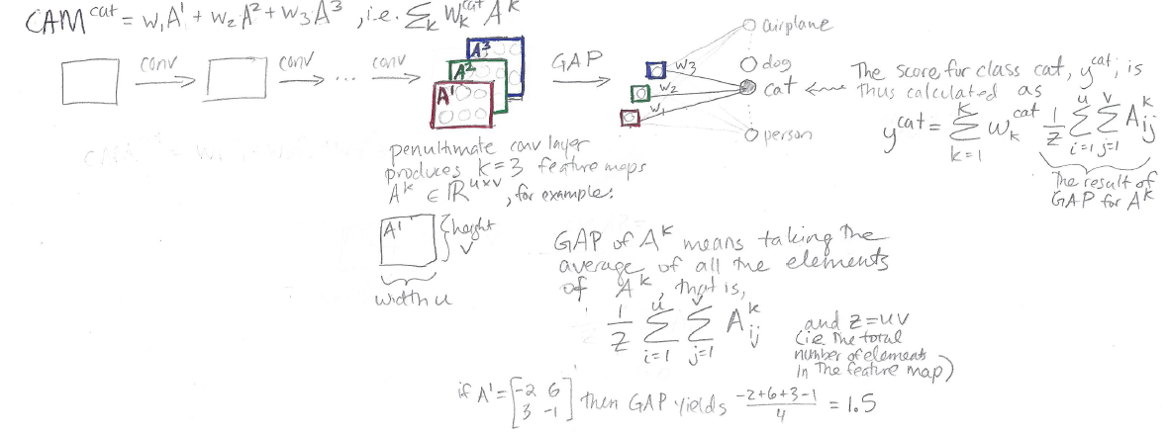 CAM^cat = w₁A¹ + w₂A² + w₃A³, i.e. Σ_k w_k^cat A^k
conv
conv
...
conv
A³
A²
A¹
GAP
w₃
w₂
w₁
airplane
dog
cat
person
The score for class cat, y^cat, is
thus calculated as
y^cat = Σ_{k=1}^{K} w_k^cat 1/Z Σ_{i=1}^{u} Σ_{j=1}^{v} A_ij^k
The result of
GAP for A^k
penultimate conv layer
produces K=3 feature maps
A^k ∈ ℝ^{u×v}, for example:
A¹
height
v
width u
GAP of A^k means taking the
average of all the elements
of A^k, that is,
1/Z Σ_{i=1}^{u} Σ_{j=1}^{v} A_ij^k
and Z=uv
(i.e. the total
number of elements
in the feature map)
if A¹ = [-2 6
3 -1] then GAP yields (-2+6+3-1)/4 = 1.5